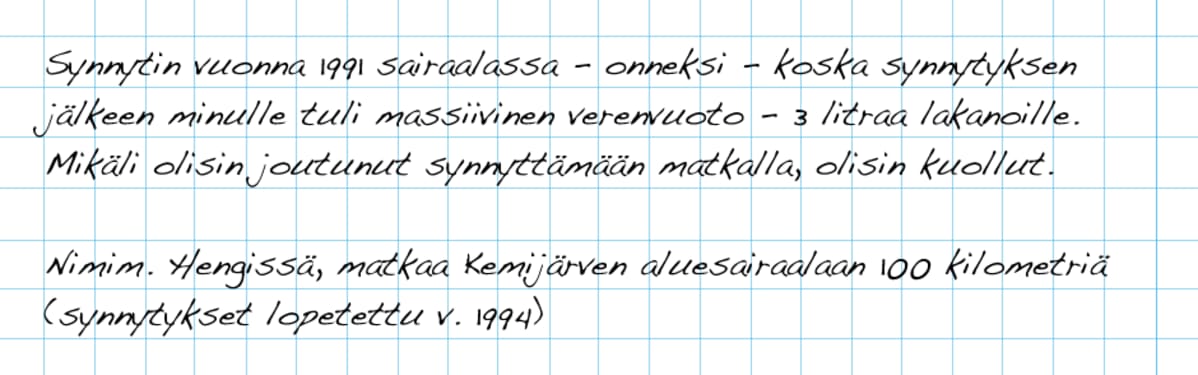 Synnytin vuonna 1991 sairaalassa - onneksi - koska synnytyksen
jälkeen minulle tuli massiivinen verenvuoto - 3 litraa lakanoille.
Mikäli olisin joutunut synnyttämään matkalla, olisin kuollut.
Nimim. Hengissä, matkaa Kemijärven aluesairaalaan 100 kilometriä
(synnytykset lopetettu v. 1994)